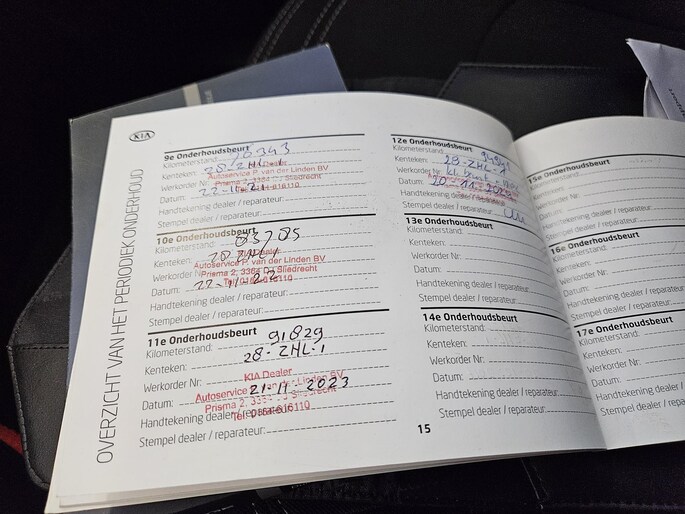 KIA
OVERZICHT VAN HET PERIODIEK ONDERHOUD
9e Onderhoudsbeurt
Kilometerstand: 76343
Kenteken: 28-ZHL-1
KIA Dealer
Autoservice P. van der Linden BV
Werkorder Nr:
Datum: 22-10-21
Handtekening dealer / reparateur:
Stempel dealer / reparateur:
10e Onderhoudsbeurt
Kilometerstand: 83705
Kenteken: 28 ZHL 1
Autoservice P. van der Linden BV
Werkorder Nr:
Prisma 2, 3364 DJ Sliedrecht
Datum: 22-11-22
Handtekening dealer / reparateur:
Stempel dealer / reparateur:
11e Onderhoudsbeurt
Kilometerstand: 91829
Kenteken: 28-ZHL-1
Werkorder Nr:
KIA Dealer
Autoservice
Linden BV
Datum: 21-11-2023
Handtekening dealer / reparateur:
Stempel dealer / reparateur:
12e Onderhoudsbeurt
Kilometerstand:
Kenteken: 28-ZHL-1
Werkorder Nr: kl. beurt
Datum: 20-11-202
Handtekening dealer / reparateur:
Stempel dealer / reparateur:
13e Onderhoudsbeurt
Kilometerstand:
Kenteken:
Werkorder Nr:
Datum:
Handtekening dealer / reparateur:
Stempel dealer / reparateur:
14e Onderhoudsbeurt
Kilometerstand:
Kenteken:
Werkorder Nr:
Datum:
Handtekening dealer / reparateur:
Stempel dealer / reparateur:
15
15e Onderhoudsbeurt
Kilometerstand:
Kenteken:
Werkorder Nr:
Datum:
Handtekening dealer / reparateur:
Stempel dealer / reparateur:
16e Onderhoudsbeurt
Kilometerstand:
Kenteken:
Werkorder Nr:
Datum:
Handtekening dealer / reparateur:
Stempel dealer / reparateur:
17e Onderhoudsbeurt
Kilometerstand:
Kenteken:
Werkorder Nr:
Datum:
Handtekening dealer / reparateur:
Stempel dealer / reparateur: